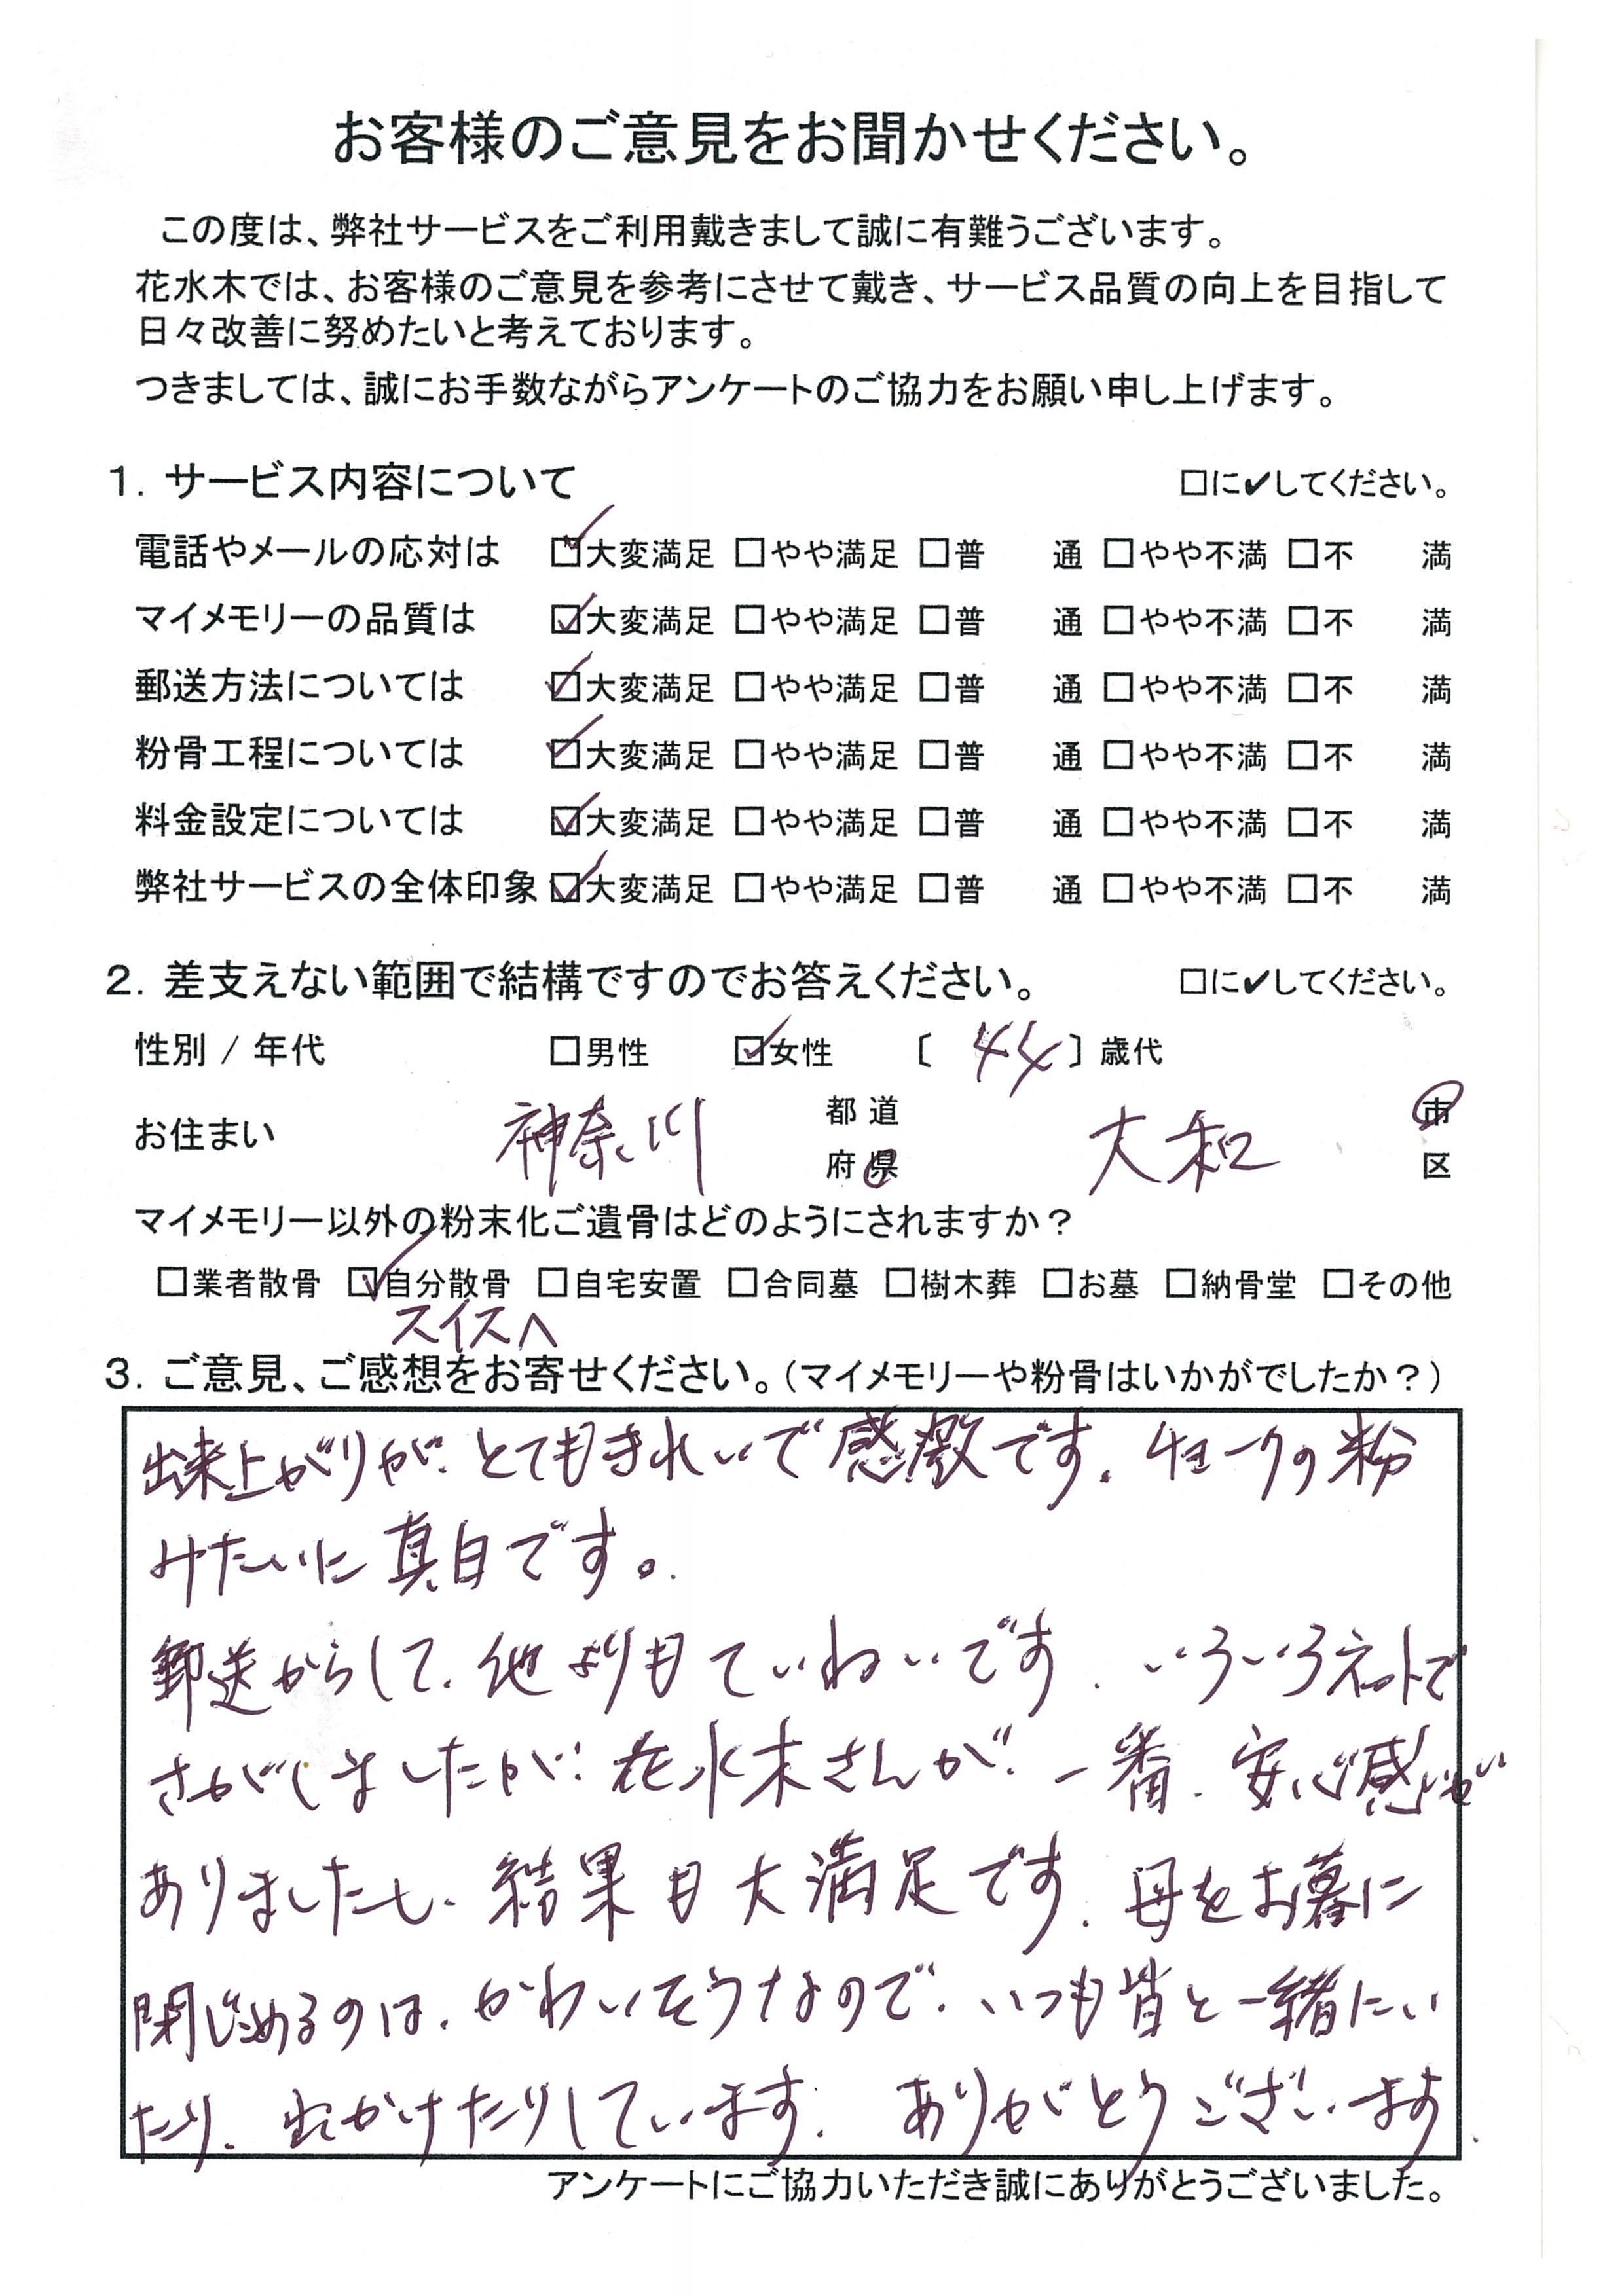 お客様のご意見をお聞かせください。
この度は、弊社サービスをご利用戴きまして誠に有難うございます。
花水木では、お客様のご意見を参考にさせて戴き、サービス品質の向上を目指して
日々改善に努めたいと考えております。
つきましては、誠にお手数ながらアンケートのご協力をお願い申し上げます。
1. サービス内容について □に✔してください。
電話やメールの応対は ☑大変満足 □やや満足 □普 通 □やや不満 □不 満
マイメモリーの品質は ☑大変満足 □やや満足 □普 通 □やや不満 □不 満
郵送方法については ☑大変満足 □やや満足 □普 通 □やや不満 □不 満
粉骨工程については ☑大変満足 □やや満足 □普 通 □やや不満 □不 満
料金設定については ☑大変満足 □やや満足 □普 通 □やや不満 □不 満
弊社サービスの全体印象 ☑大変満足 □やや満足 □普 通 □やや不満 □不 満
2. 差支えない範囲で結構ですのでお答えください。 □に✔してください。
性別 / 年代 □男性 ☑女性 〔 44 〕歳代
お住まい 神奈川 都道府県 大和 市区
マイメモリー以外の粉末化ご遺骨はどのようにされますか？
□業者散骨 ☑自分散骨 □自宅安置 □合同墓 □樹木葬 □お墓 □納骨堂 □その他
スイスへ
3. ご意見、ご感想をお寄せください。（マイメモリーや粉骨はいかがでしたか？）
出来上がりが、とてもきれいで感激です。チョークの粉
みたいに真白です。
郵送からして、他よりもていねいです。いろいろネットで
さがしましたが、花水木さんが、一番、安心感が
ありましたし、結果も大満足です。母をお墓に
閉じこめるのは、かわいそうなので、いつも皆と一緒にい
たり、出かけたりしています。ありがとうございます。
アンケートにご協力いただき誠にありがとうございました。